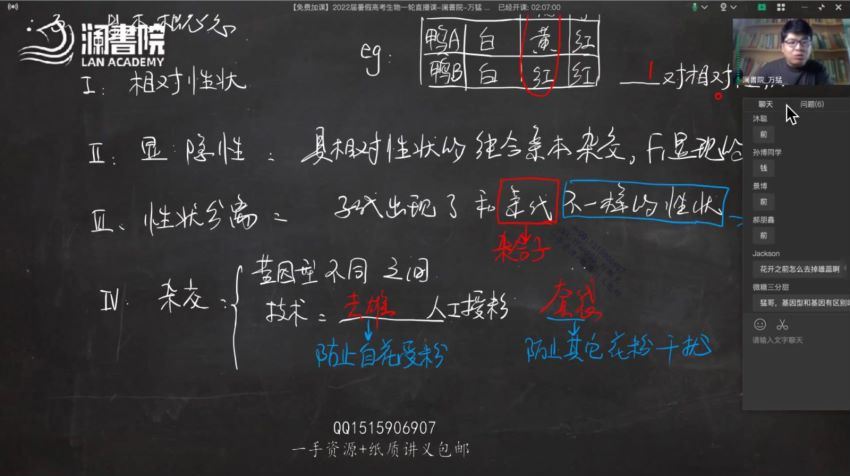 【免费加课】2022届暑假高考生物一轮直播课–澜書院–万猛 ...
已经开课: 02:07:00
澜書院
LAN ACADEMY
eg:
鸭A 白 黄 红
鸭B 白 红 红
1 对相对
I: 相对性状
II: 显.隐性: 具相对性状的纯合亲本杂交, F₁显现
III、性状分离 = 子代出现了和亲代不一样的性状
杂合子
IV. 杂交:
基因型不同之间
技术 = 去雄 人工授粉 套袋
防止自花受粉 防止其它花粉干扰
QQ1515906907
一手资源+纸质讲义包邮
澜書院_万猛
聊天 问题(6)
沐聪
前
孙博同学
钱
景博
前
郝朋鑫
前
Jackson
花开之前怎么去掉雄蕊啊
微糖三分甜
猛哥，基因型和基因有区别
请输入文字聊天